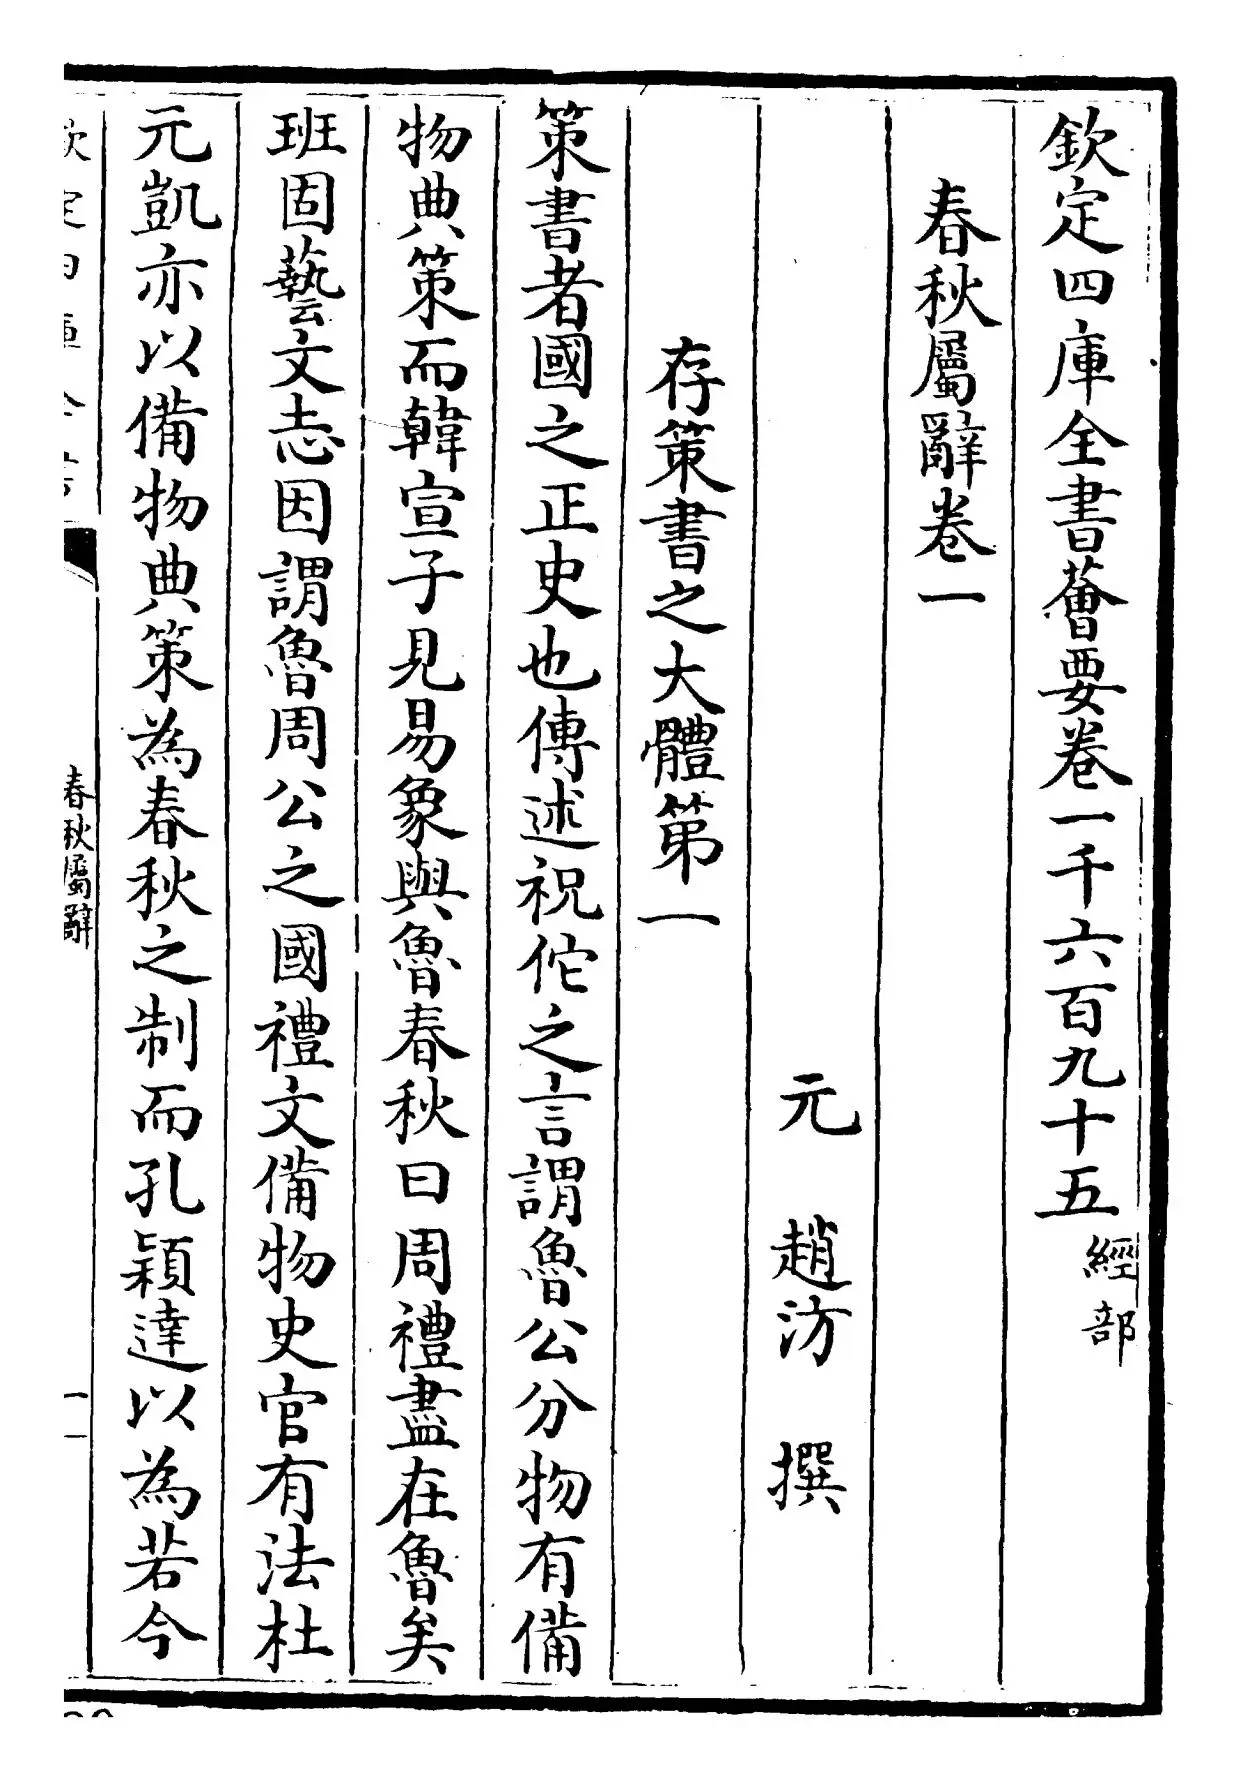 欽定四庫全書薈要卷一千六百九十五經部
春秋屬辭卷一
元 趙汸 撰
存策書之大體第一
策書者國之正史也傳述祝佗之言謂魯公分物有備
物典策而韓宣子見易象與魯春秋曰周禮盡在魯矣
班固藝文志因謂魯周公之國禮文備物史官有法杜
元凱亦以備物典策為春秋之制而孔穎達以為若今
春秋屬辭
一